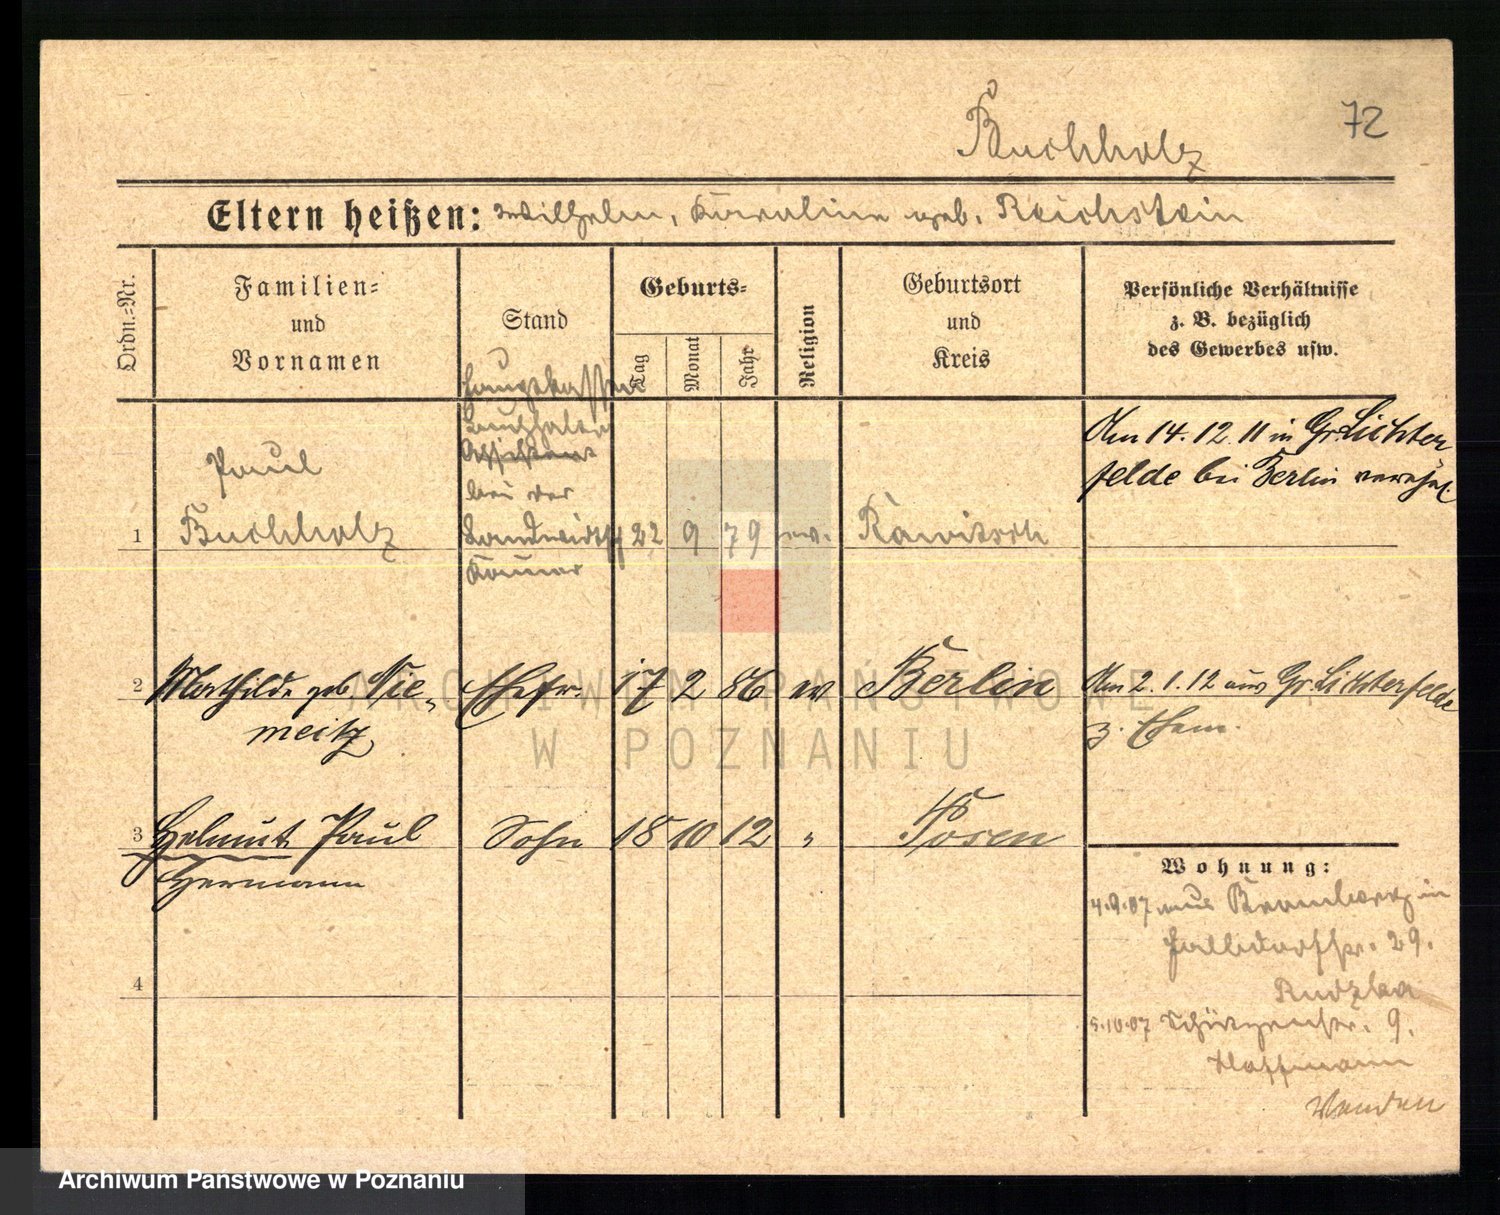 Buchholz
72
Eltern heißen: Wilhelm, Karoline geb. Reichstein
Ordn.-Nr.
Familien-
und
Vornamen
Stand
Geburts-
Tag
Monat
Jahr
Religion
Geburtsort
und
Kreis
Persönliche Verhältnisse
z. B. bezüglich
des Gewerbes usw.
Buchhalter
Assistent
bei der
Landwirtsch
Kammer
Paul
1 Buchholz 22 9 79 ev. Rawitsch
Am 14.12.11 in Gr. Lichter
felde bei Berlin vereh.
2 Mathilde geb. Nie-
meitz
Ehefr. 17 2 86 ev Berlin
Am 2.1.12 aus Gr. Lichterfelde
z. Ehem.
3 Helmut Paul
Hermann
Sohn 18 10 12 " Posen
4
Wohnung:
4.9.07 aus Bromberg in
29.
Rudzka
5.10.07 Schützenstr. 9.
Hoffmann
ARCHIWUM PAŃSTWOWE
W POZNANIU
Archiwum Państwowe w Poznaniu